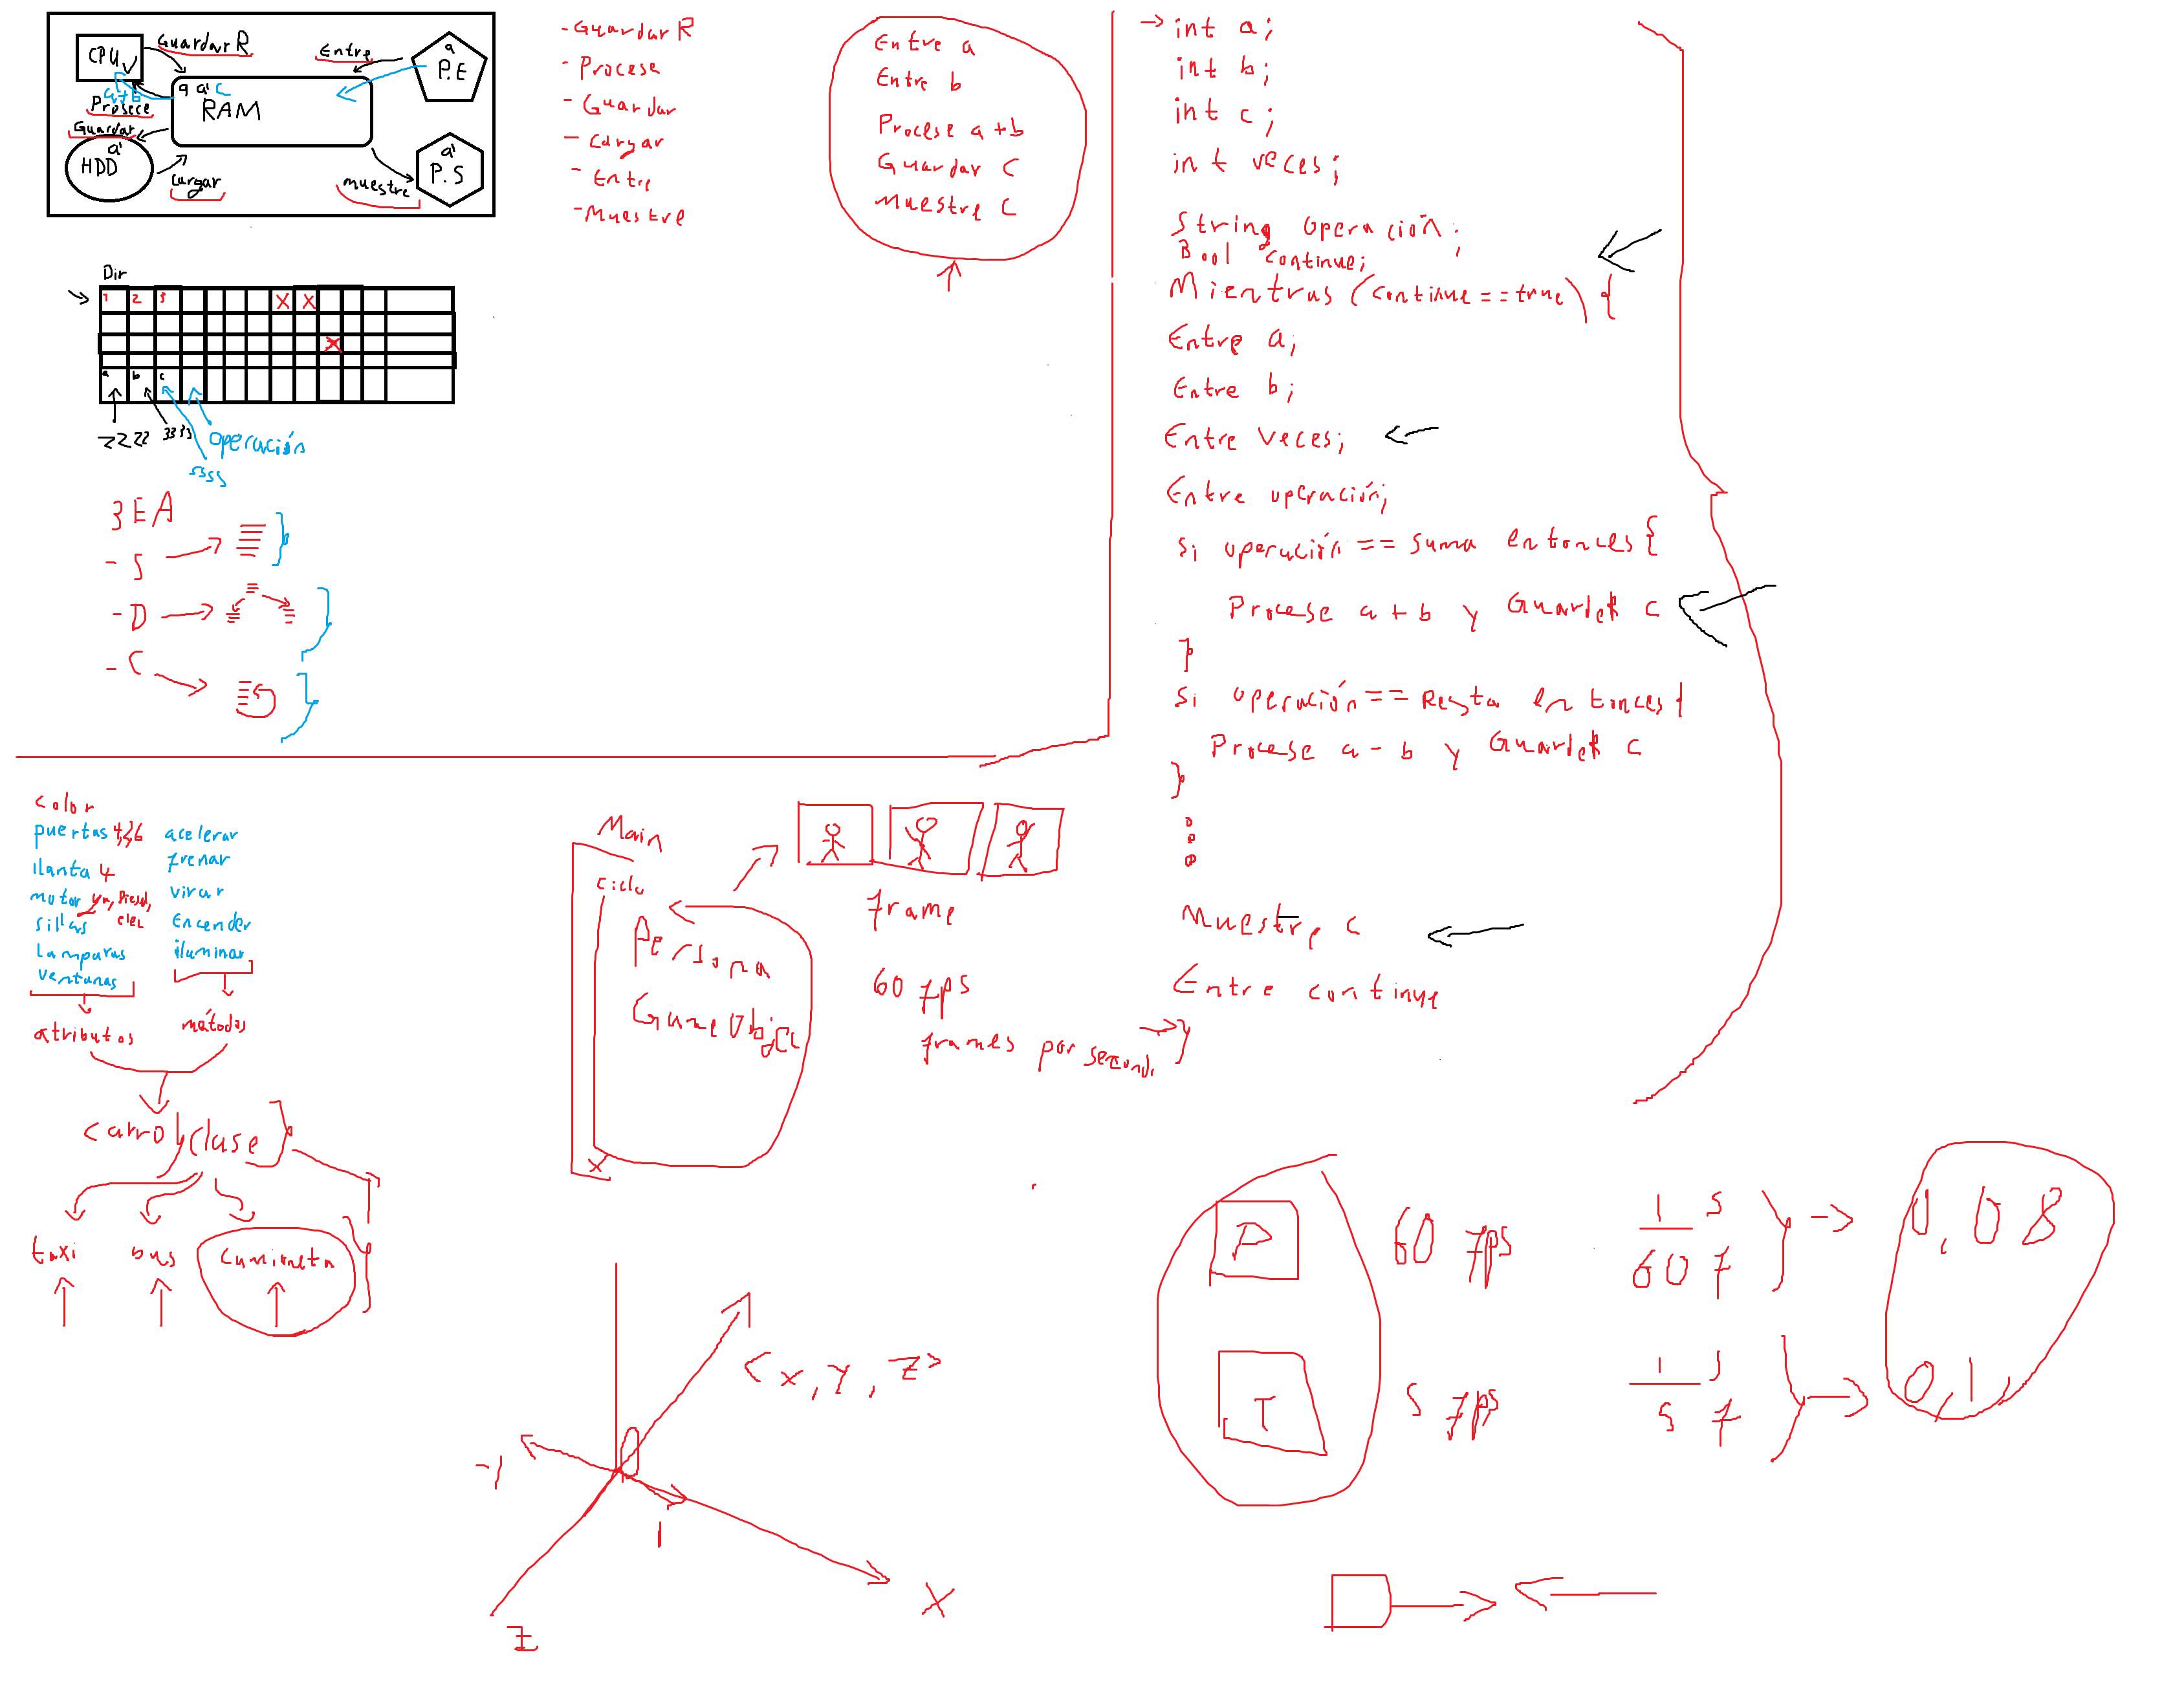 CPU
Guardar R
Entre
a
P.E
a a' c
a+b
RAM
Procese
Guardar
a'
HDD
Cargar
muestre
a'
P.S
-Guardar R
- Procese
- Guardar
- Cargar
- Entre
-Muestre
Entre a
Entre b
Procese a+b
Guardar C
Muestre C
Dir
1 2 3 X X
X
a b c
2222 3333 operación
5555
3EA
- S
- D
- C
int a;
int b;
int c;
int veces;
String operación;
Bool continue;
Mientras (continue == true) {
Entre a;
Entre b;
Entre veces;
Entre operación;
si operación == suma entonces {
Procese a + b y Guarder c
}
si operación == Resta entonces {
Procese a - b y Guarder c
}
Muestre c
Entre continue
}
color
puertas 4,2,6
llanta 4
motor Diesel,
elec
sillas
lamparas
ventanas
acelerar
frenar
virar
Encender
iluminar
atributos
métodos
carro clase
taxi
bus
camioneta
Main
ciclo
Persona
GameObject
x
frame
60 fps
frames por segundo
<x, y, z>
-1
1
X
Z
P 60 fps 1 s
60 f
0,08
T 5 fps 1 s
5 f
0,1